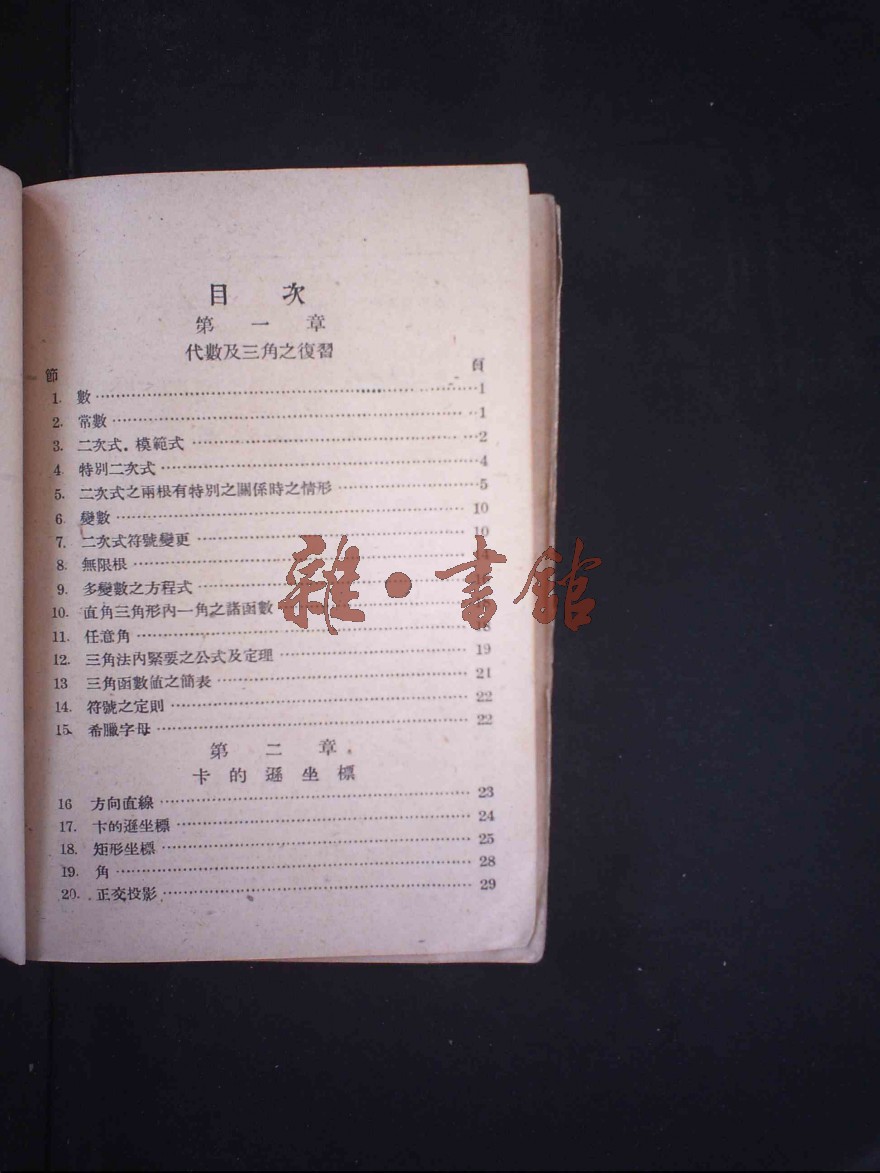 目 次
第 一 章
代數及三角之復習
節 頁
1. 數 1
2. 常數 1
3. 二次式. 模範式 2
4. 特別二次式 4
5. 二次式之兩根有特別之關係時之情形 5
6. 變數 10
7. 二次式符號變更 10
8. 無限根 14
9. 多變數之方程式 16
10. 直角三角形內一角之諸函數
11. 任意角 18
12. 三角法內緊要之公式及定理 19
13 三角函數值之簡表 21
14. 符號之定則 22
15. 希臘字母 22
第 二 章
卡 的 遜 坐 標
16 方向直線 23
17. 卡的遜坐標 24
18. 矩形坐標 25
19. 角 28
20. 正交投影 29
雜·書館